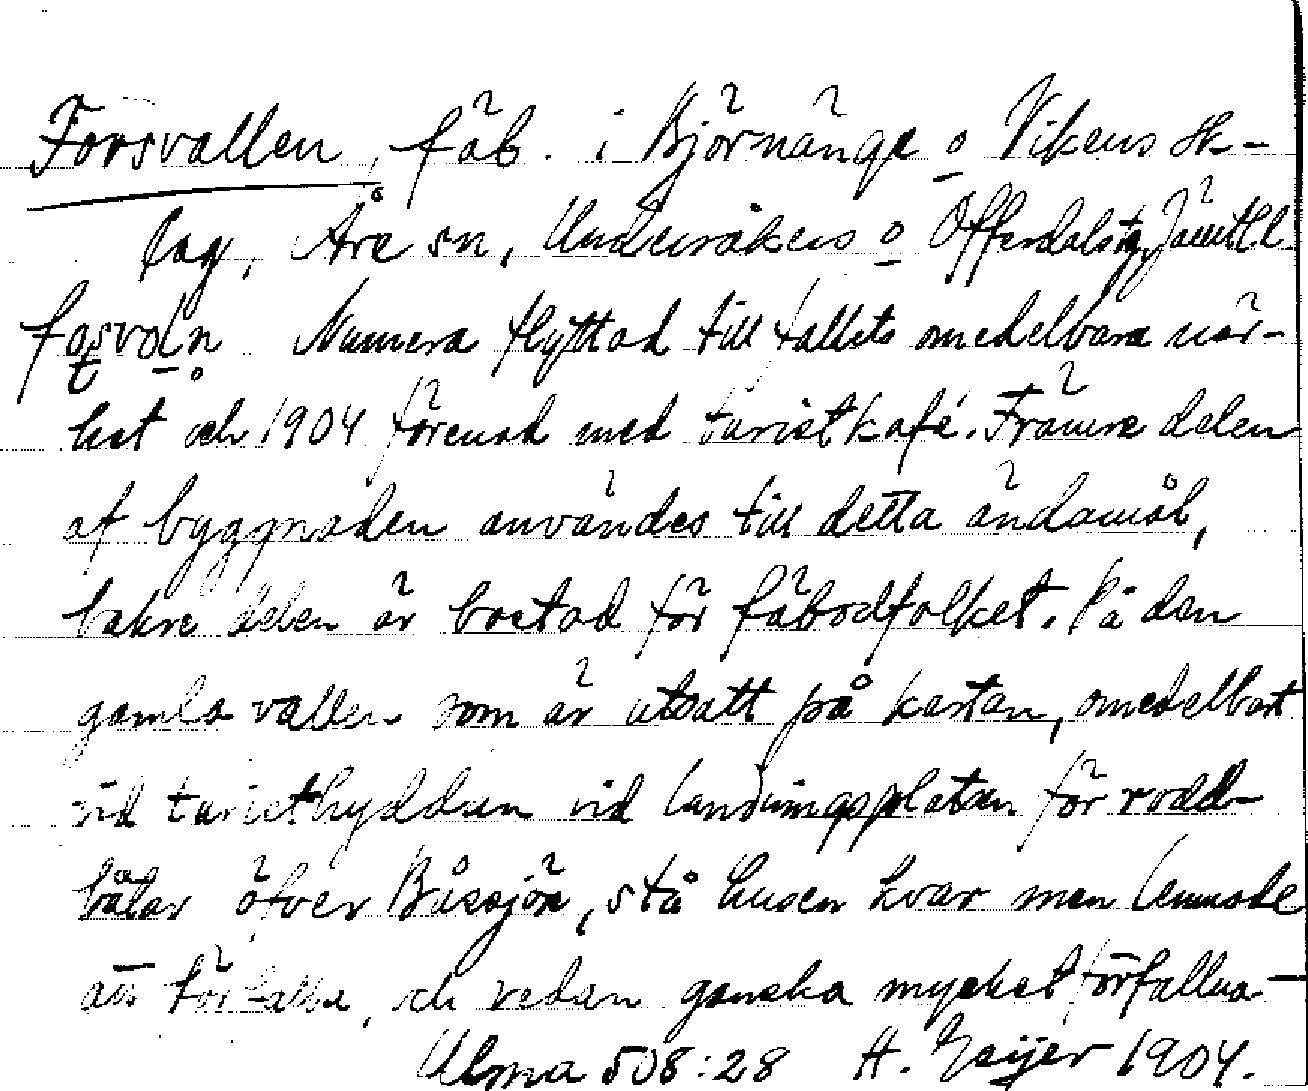 Forsvallen, fäb. i Björnänge o Vikens sk-
lag, Åre sn, Undersåkers o Offerdals tg, Jämtl.
Numera flyttad till fallets omedelbara när-
het och 1904 förenad med turistkafé. Främre delen
af byggnaden användes till detta ändamål,
bakre delen är bostad för fäbodfolket. På den
gamla vallen som är utsatt på kartan, omedelbart
vid turisthyddan vid landningsplatsen för rodd-
båtar öfver Båssjön, stå husen kvar men lemnade
att förfalla, och redan ganska mycket förfallna-
Ulma 508:28 H. Geijer 1904.